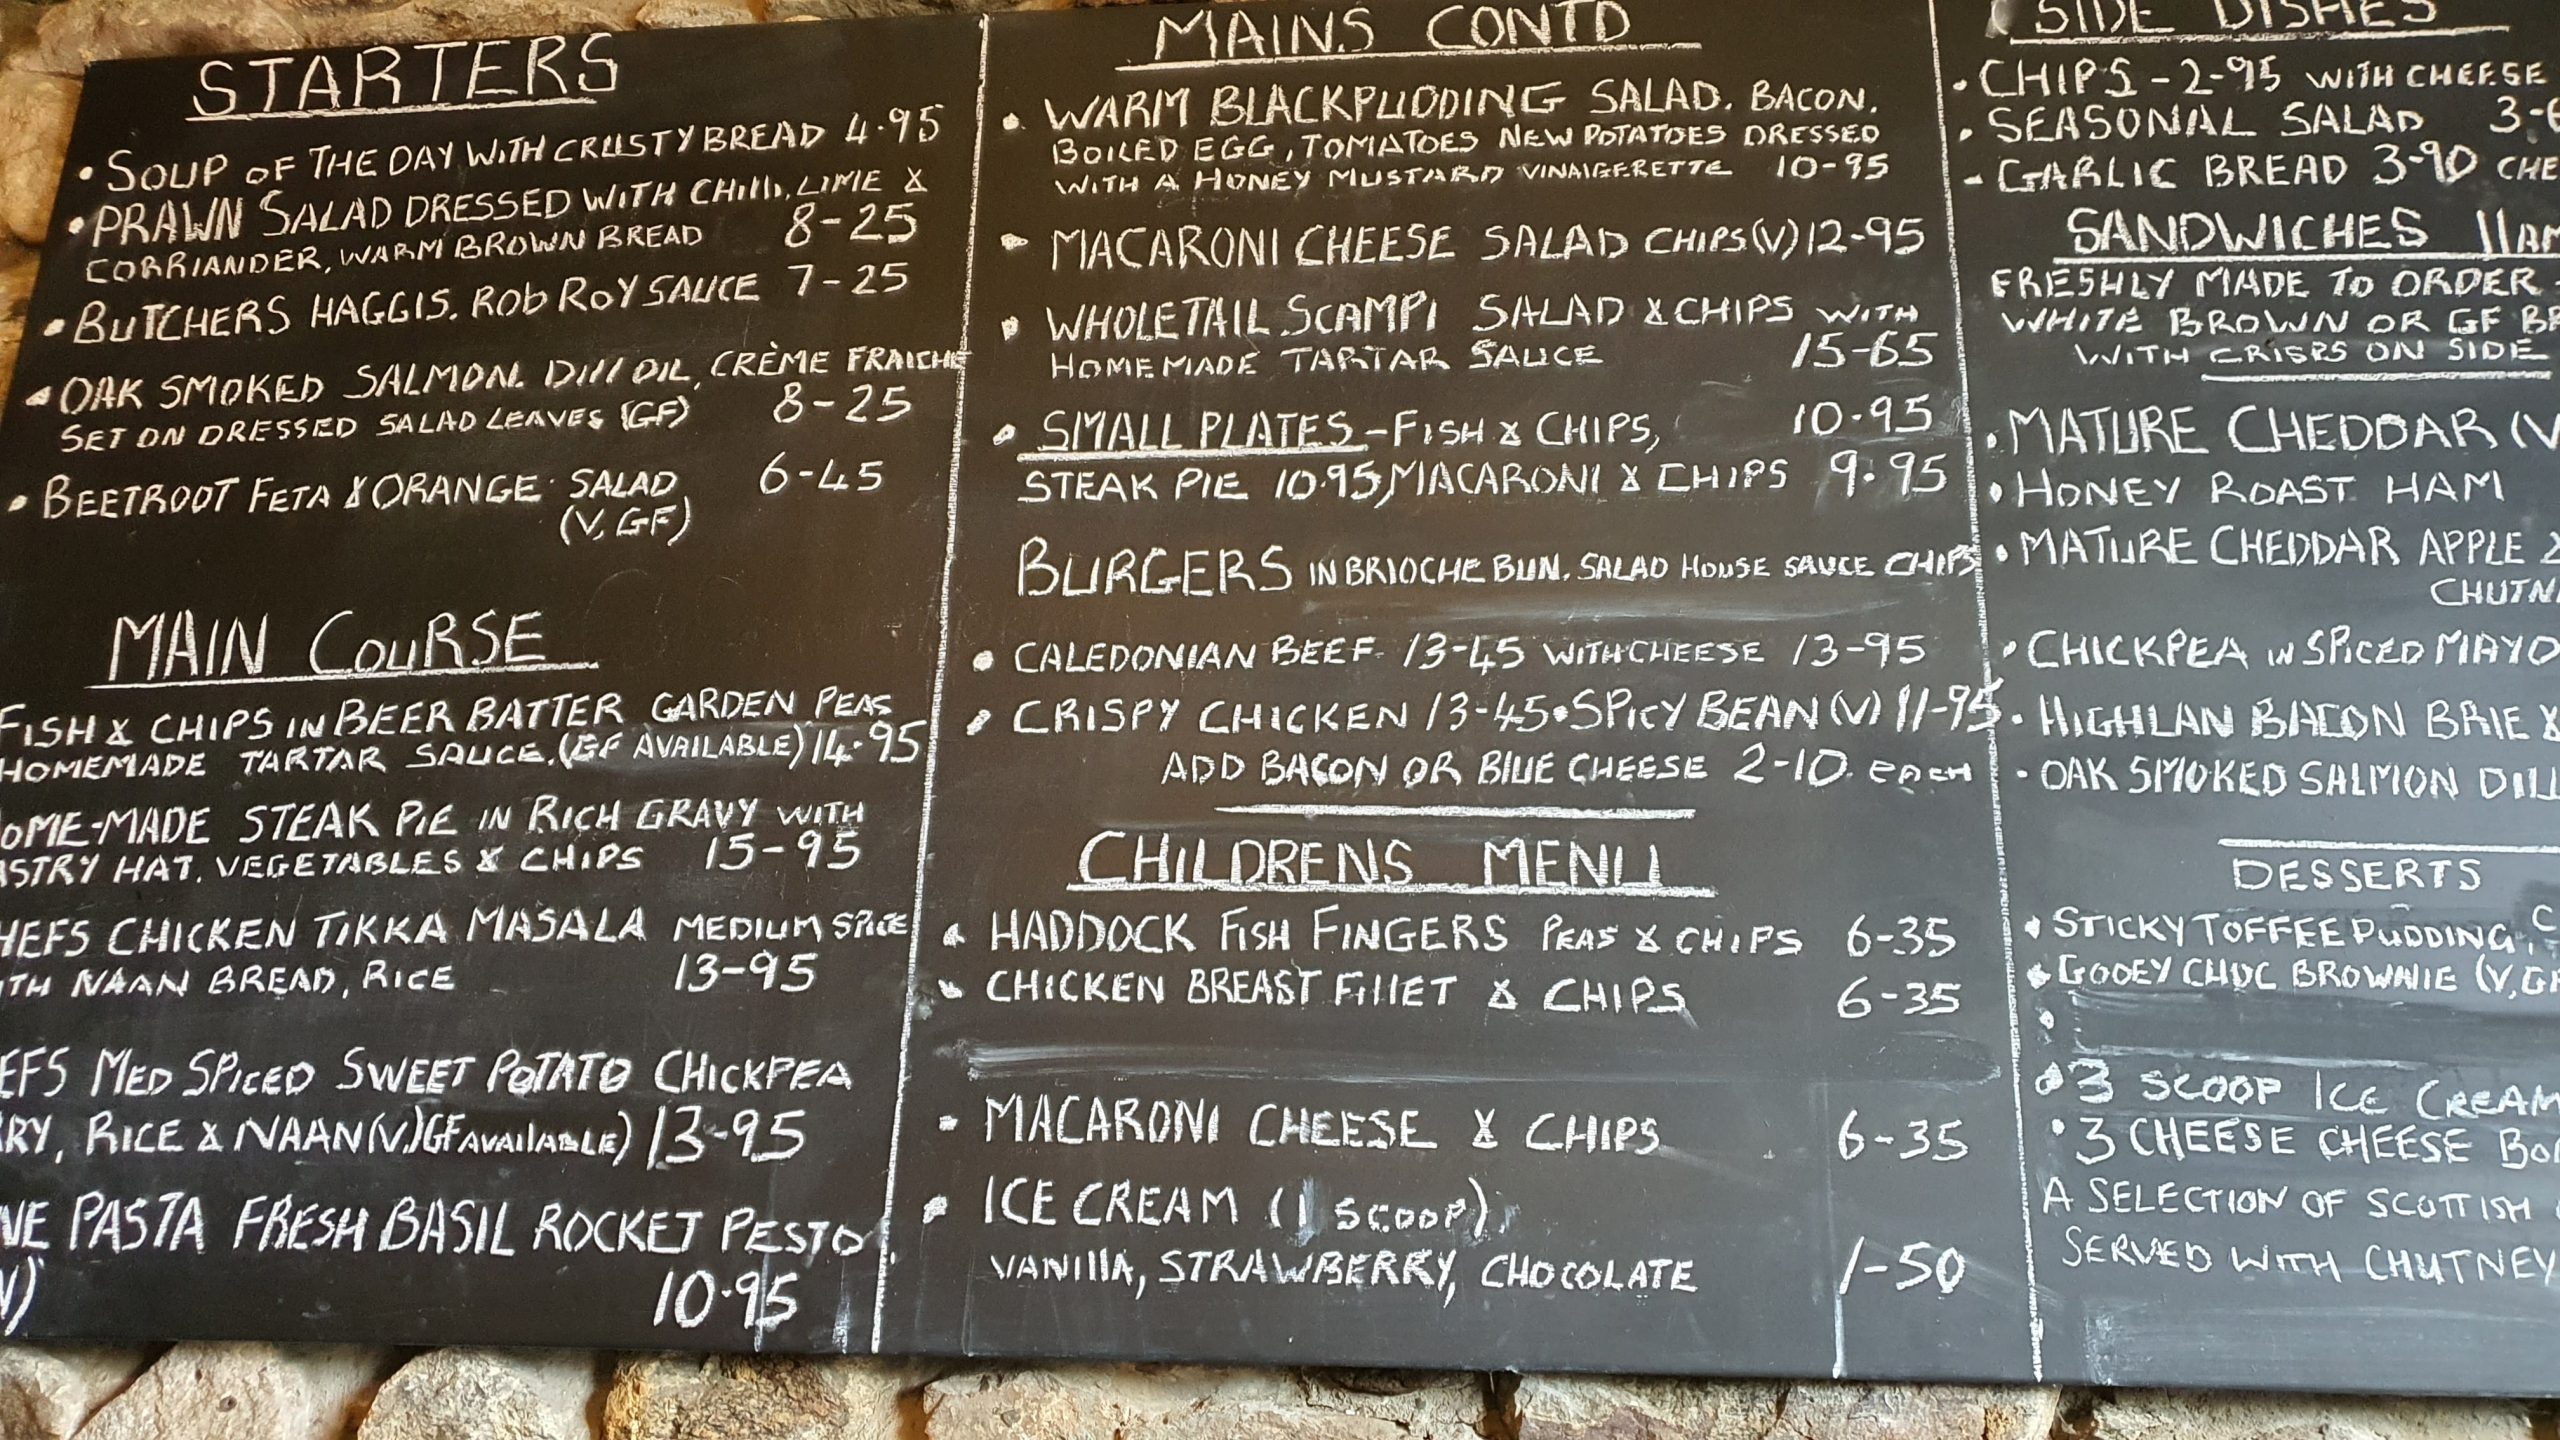 STARTERS
• SOUP OF THE DAY WITH CRUSTY BREAD 4.95
• PRAWN SALAD DRESSED WITH CHILLI, LIME &
CORRIANDER, WARM BROWN BREAD 8-25
• BUTCHERS HAGGIS. ROB ROY SAUCE 7-25
• OAK SMOKED SALMON DILL OIL, CRÈME FRAICHE
SET ON DRESSED SALAD LEAVES (GF) 8-25
• BEETROOT FETA & ORANGE SALAD 6-45
(V, GF)
MAIN COURSE
FISH & CHIPS IN BEER BATTER GARDEN PEAS
HOMEMADE TARTAR SAUCE. (GF AVAILABLE) 14.95
OME-MADE STEAK PIE IN RICH GRAVY WITH
ASTRY HAT. VEGETABLES & CHIPS 15-95
HEFS CHICKEN TIKKA MASALA MEDIUM SPICE
ITH NAAN BREAD, RICE 13-95
EFS MED SPICED SWEET POTATO CHICKPEA
RRY, RICE & NAAN (V,)(GF AVAILABLE) 13-95
NE PASTA FRESH BASIL ROCKET PESTO
V) 10.95
MAINS CONTD
• WARM BLACKPUDDING SALAD. BACON.
BOILED EGG, TOMATOES NEW POTATOES DRESSED
WITH A HONEY MUSTARD VINAIGERETTE 10-95
• MACARONI CHEESE SALAD CHIPS (V) 12-95
• WHOLETAIL SCAMPI SALAD & CHIPS WITH
HOMEMADE TARTAR SAUCE 15-65
• SMALL PLATES - FISH & CHIPS, 10.95
STEAK PIE 10.95, MACARONI & CHIPS 9.95
BURGERS IN BRIOCHE BUN. SALAD HOUSE SAUCE CHIPS
• CALEDONIAN BEEF 13-45 WITH CHEESE 13-95
• CRISPY CHICKEN 13-45 • SPICY BEAN (V) 11-95
ADD BACON OR BLUE CHEESE 2-10 EACH
CHILDRENS MENU
• HADDOCK FISH FINGERS PEAS & CHIPS 6-35
• CHICKEN BREAST FILLET & CHIPS 6-35
• MACARONI CHEESE & CHIPS 6-35
• ICE CREAM (1 SCOOP)
VANILLA, STRAWBERRY, CHOCOLATE 1-50
SIDE DISHES
• CHIPS - 2-95 WITH CHEESE
• SEASONAL SALAD 3-6
- GARLIC BREAD 3-90 CHE
SANDWICHES 11AM
FRESHLY MADE TO ORDER -
WHITE BROWN OR GF BR
WITH CRISPS ON SIDE
• MATURE CHEDDAR (V
• HONEY ROAST HAM
• MATURE CHEDDAR APPLE &
CHUTN
• CHICKPEA IN SPICED MAYO
• HIGHLAN BACON BRIE &
• OAK SMOKED SALMON DILL
DESSERTS
• STICKY TOFFEE PUDDING, C
• GOOEY CHOC BROWNIE (V,GF
• 3 SCOOP ICE CREAM
• 3 CHEESE CHEESE BO
A SELECTION OF SCOTTISH
SERVED WITH CHUTNEY